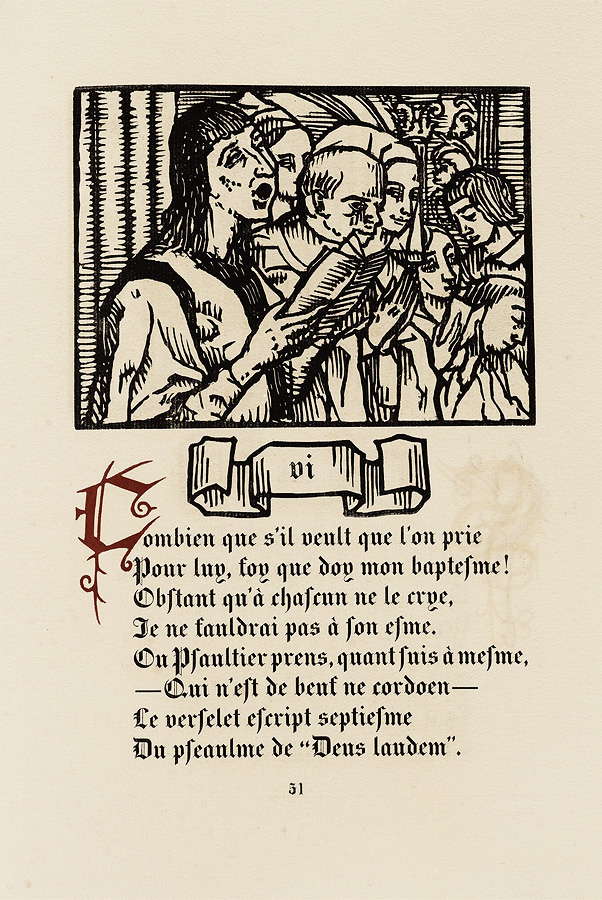 vi
Combien que s'il veult que l'on prie
Pour luy, foy que doy mon baptesme!
Obstant qu'à chascun ne le crye,
Je ne fauldrai pas à son esme.
Ou Psaultier prens, quant suis à mesme,
—Qui n'est de beuf ne cordoen—
Le verselet escript septiesme
Du pseaulme de “Deus laudem”.
51